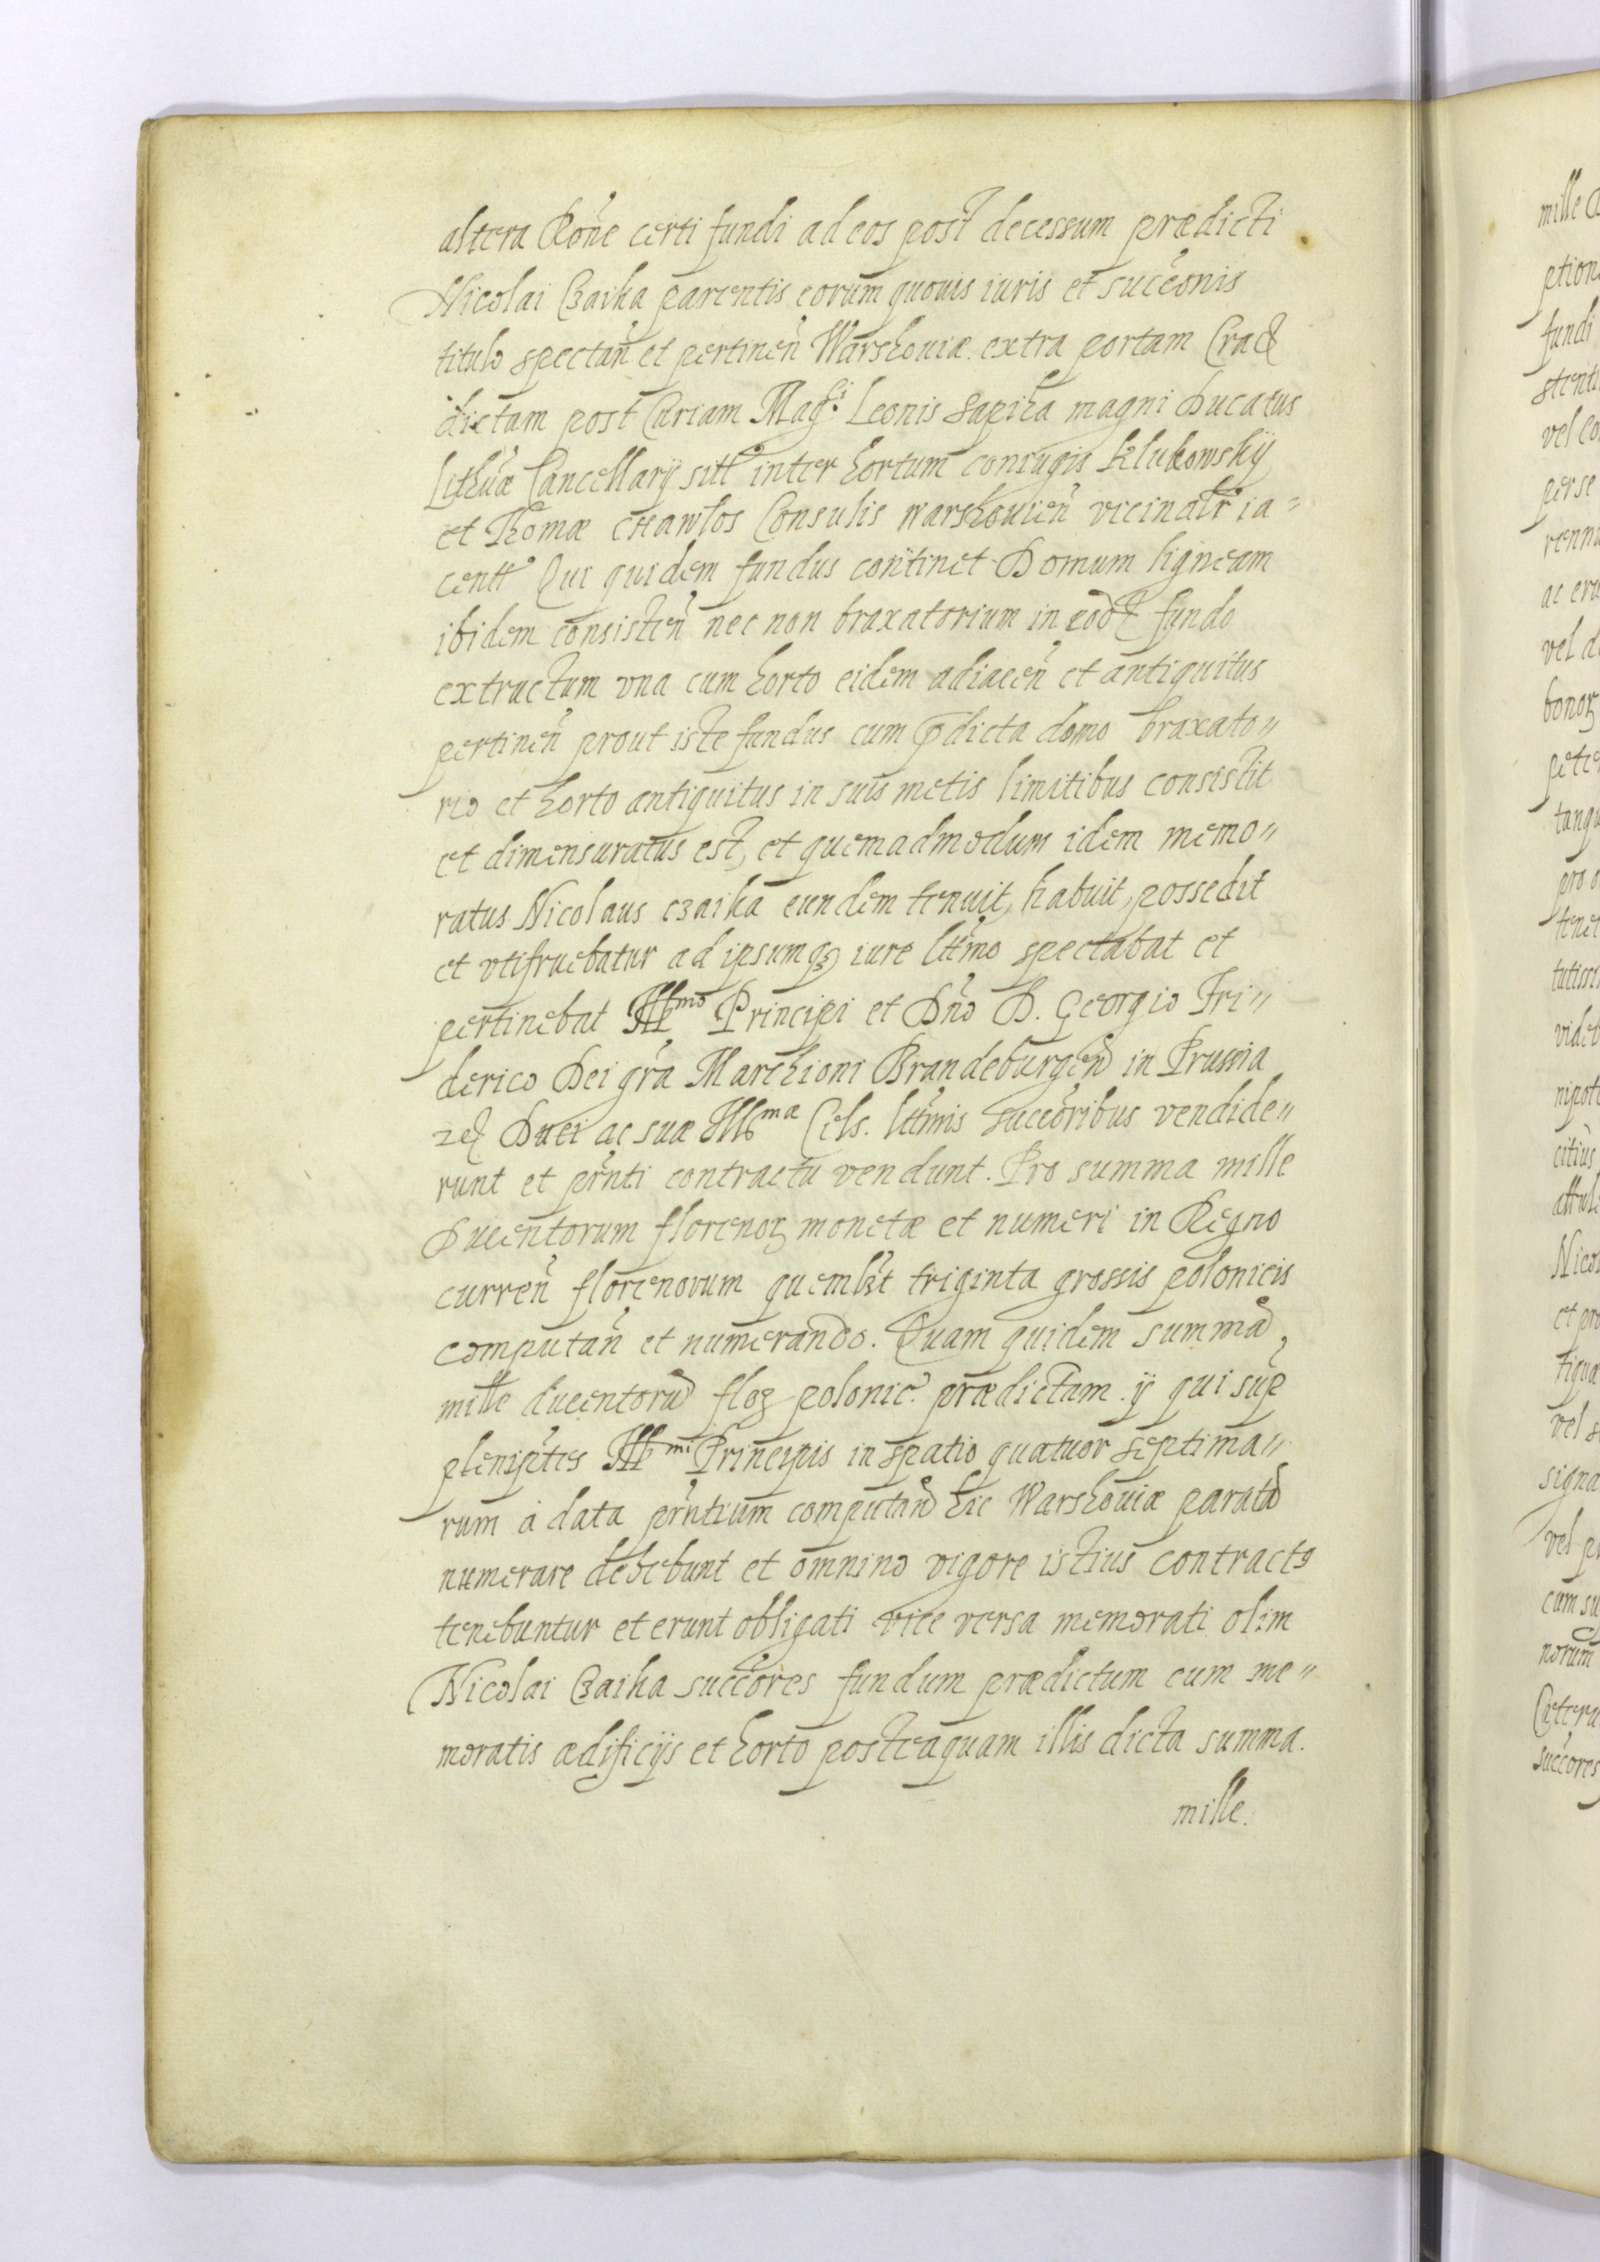 altera Rõne certi fundi ad eos post decessum prædicti
Nicolai Czaika parentis eorum quouis iuris et succonis
titulo spectañ et pertineñ Warshouiæ extra portam Crac
dictam post Curiam Magci Leonis Sapiha magni Ducatus
Lithuæ Cancellarij sitt inter hortum coniugis Klukowskij
et Thomæ Consulis warshouieñ vicinatr ia=
centt Qui quidem fundus continet Domum ligneam
ibidem consisteñ nec non braxatorium in eod fundo
extructum vna cum horto eidem adiaceñ et antiquitus
pertineñ prout iste fundus cum pdicta domo braxato"
rio et horto antiquitus in suis metis limitibus consistit
et dimensuratus est, et quemadmodum idem memo"
ratus Nicolaus Czaika eundem tenuit, habuit, possedit
et vtifruebatur ad ipsumqz iure lttimo spectabat et
pertinebat Illmo Principi et Dño D. Georgio Fri"
derico Dei grã Marchioni Brandeburgen in Prussia
zc Duci ac suæ Illmæ Cels. lttimis succoribus vendide"
runt et prnti contractu vendunt. Pro summa mille
Ducentorum florenoz monetæ et numeri in Regno
curreñ florenorum quemlbt triginta grossis polonicis
computañ et numerando. Quam quidem summã
mille ducentorũ floz polonic. prædictam ij qui sup
plenipties Illmi Principis in spatio quatuor septima"
rum à data prntium computand hic Warshouiæ parata
numerare debebunt et omnino vigore istius contractus
tenebuntur et erunt obligati vice versa memorati olim
Nicolai Czaika succores fundum prædictum cum me"
moratis ædificijs et horto posteaquam illis dicta summa.
mille.